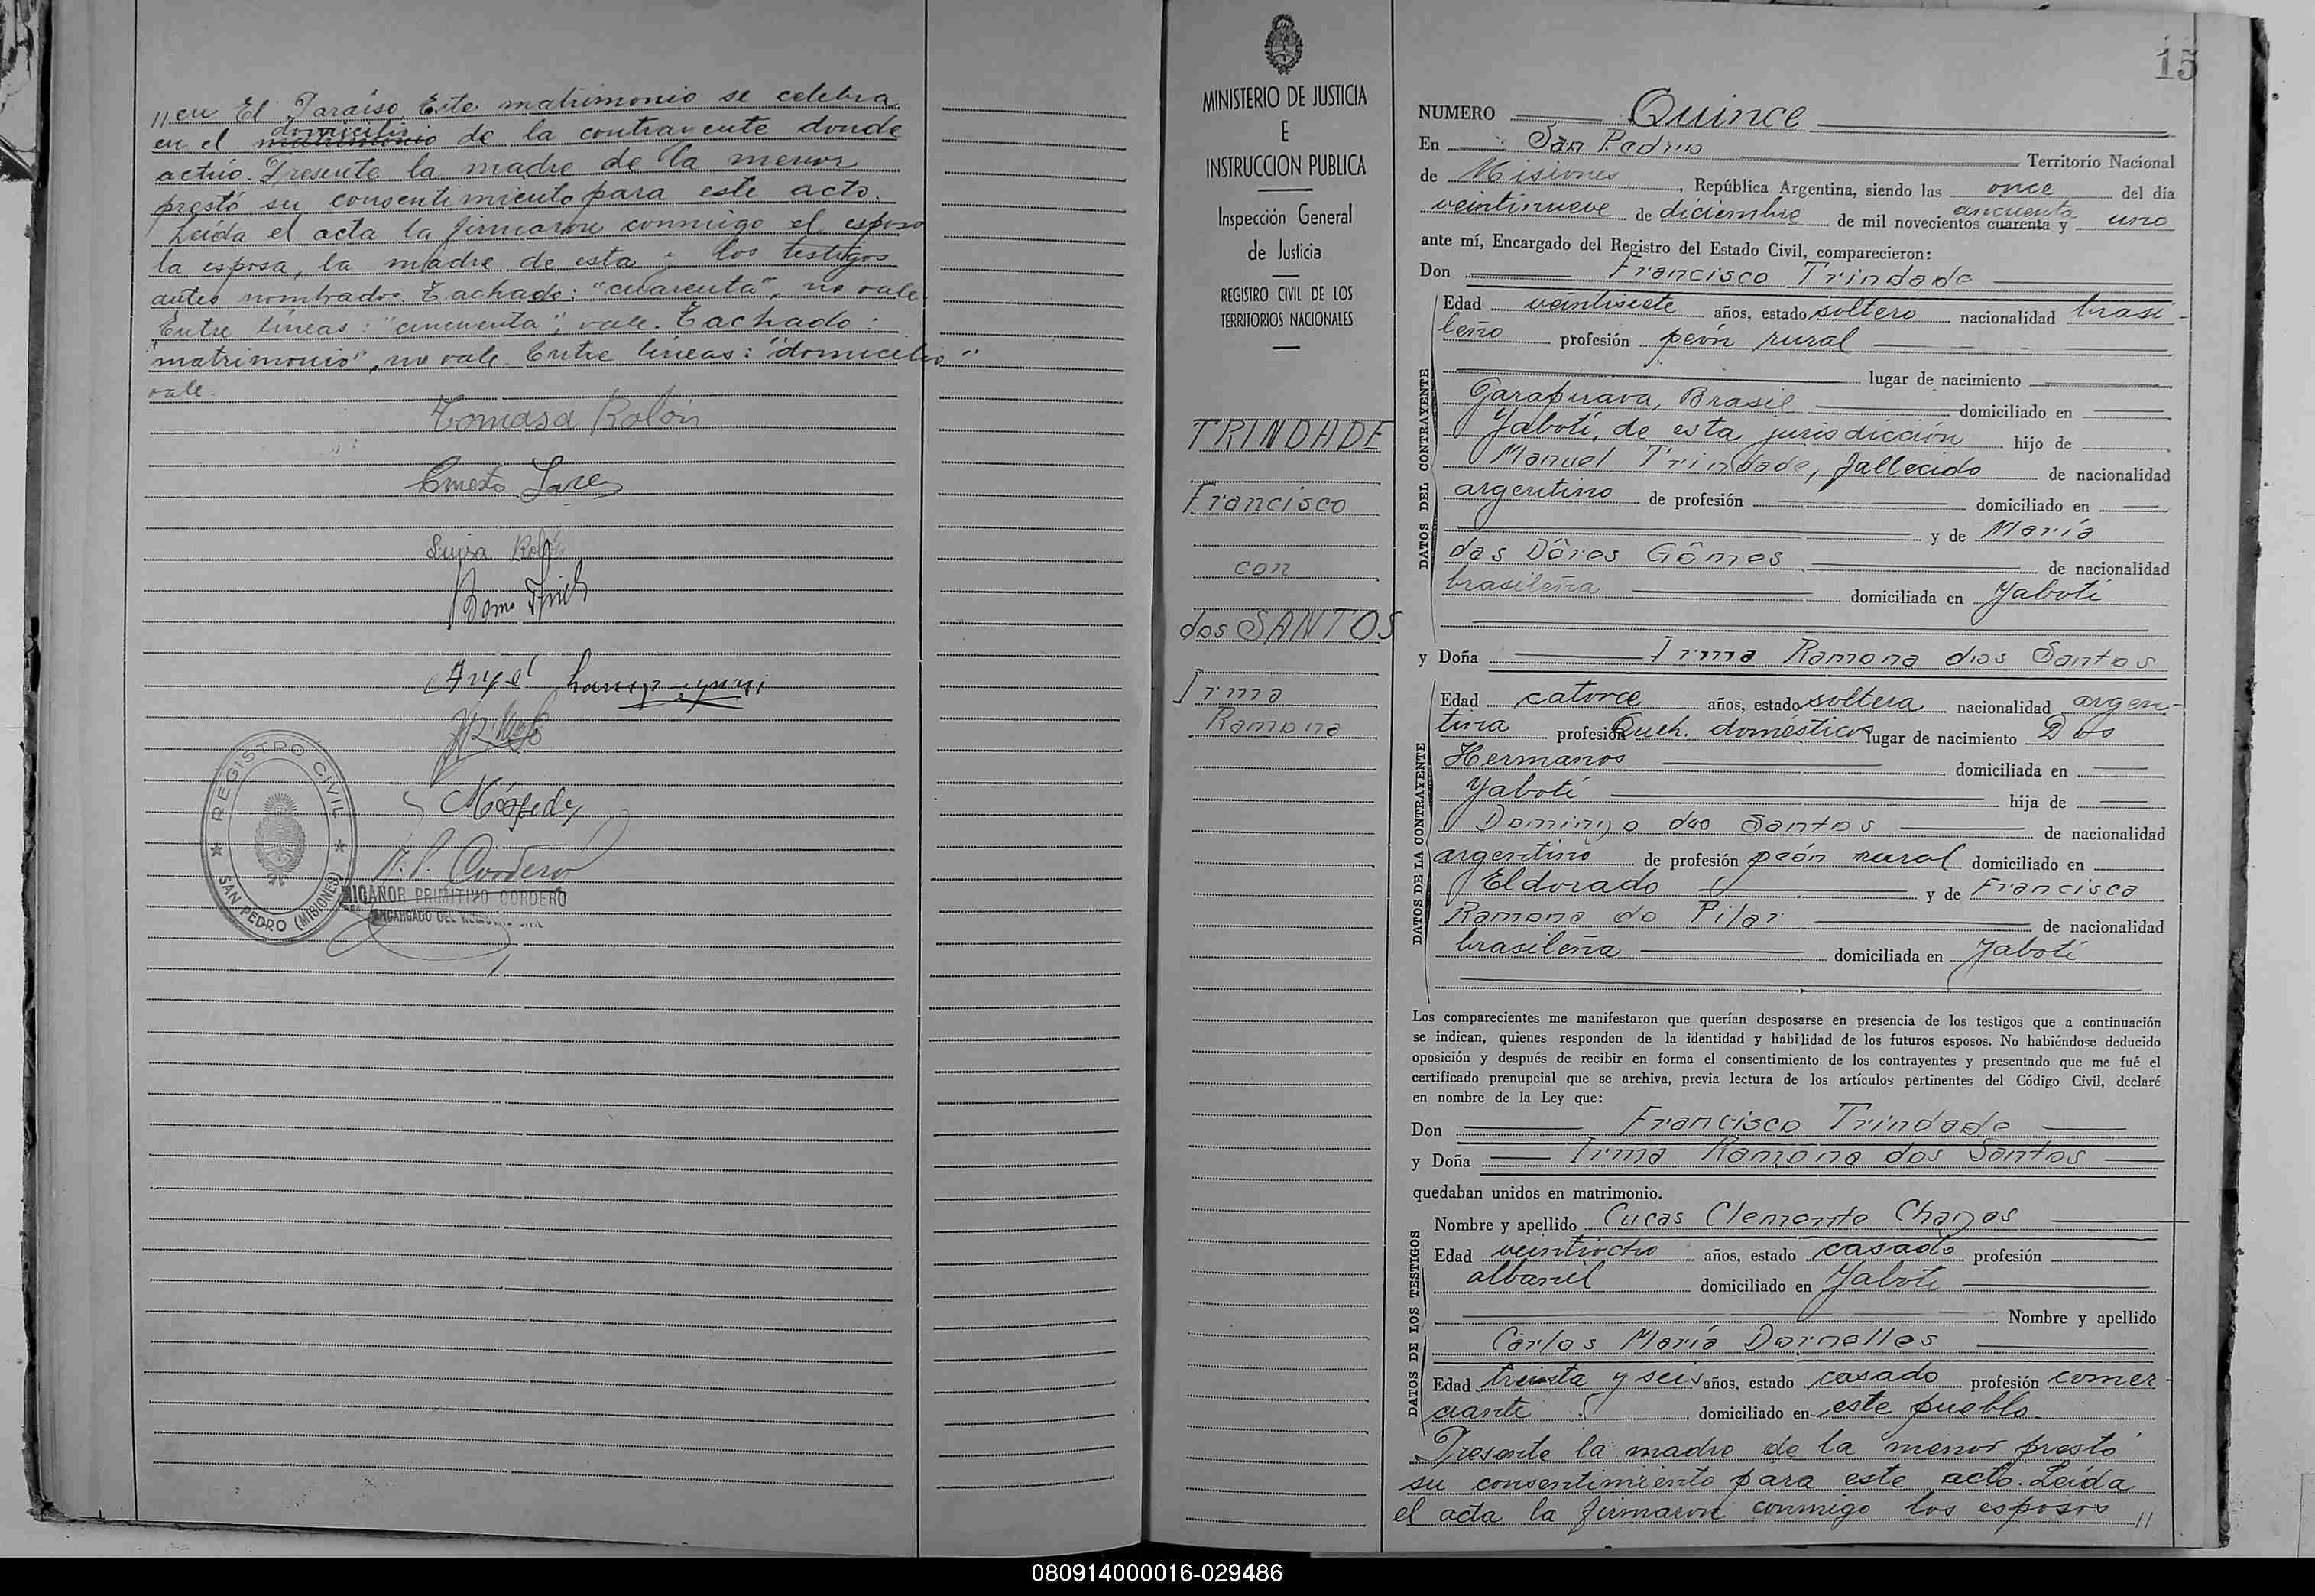 // en El Paraíso. Este matrimonio se celebra
domicilio
en el matrimonio de la contrayente donde
actúo. Presente la madre de la menor
prestó su consentimiento para este acto.
Leída el acta la firmaron conmigo el esposo
la esposa, la madre de esta y los testigos
antes nombrados. Tachado: "cuarenta", no vale.
Entre líneas: "cincuenta", vale. Tachado:
"matrimonio", no vale. Entre líneas: "domicilio"
vale.
Tomasa Rolón
Ernesto
Luisa
Angel
N. P. Cordero
REGISTRO CIVIL
SAN PEDRO (MISIONES)
NICANOR PRIMITIVO CORDERO
ENCARGADO DEL REGISTRO CIVIL
MINISTERIO DE JUSTICIA
E
INSTRUCCION PUBLICA
Inspección General
de Justicia
REGISTRO CIVIL DE LOS
TERRITORIOS NACIONALES
TRINDADE
Francisco
con
dos SANTOS
Irma
Ramona
15
NUMERO Quince
En San Pedro Territorio Nacional
de Misiones, República Argentina, siendo las once del día
cincuenta
veintinueve de diciembre de mil novecientos cuarenta y uno
ante mí, Encargado del Registro del Estado Civil, comparecieron:
Don Francisco Trindade
DATOS DEL CONTRAYENTE
Edad veintisiete años, estado soltero nacionalidad brasi-
leño profesión peón rural
lugar de nacimiento
Garapuava, Brasil domiciliado en
Yabotí, de esta jurisdicción hijo de
Manuel Trindade, fallecido de nacionalidad
argentino de profesión domiciliado en
y de María
das Dôres Gômes de nacionalidad
brasileña domiciliada en Yabotí
y Doña Irma Ramona dos Santos
DATOS DE LA CONTRAYENTE
Edad catorce años, estado soltera nacionalidad argen-
tina profesión Queh. domésticos lugar de nacimiento Dos
Hermanos domiciliada en
Yabotí hija de
Domingo dos Santos de nacionalidad
argentino de profesión peón rural domiciliado en
Eldorado y de Francisca
Ramona do Pilar de nacionalidad
brasileña domiciliada en Yabotí
Los comparecientes me manifestaron que querían desposarse en presencia de los testigos que a continuación
se indican, quienes responden de la identidad y habilidad de los futuros esposos. No habiéndose deducido
oposición y después de recibir en forma el consentimiento de los contrayentes y presentado que me fué el
certificado prenupcial que se archiva, previa lectura de los artículos pertinentes del Código Civil, declaré
en nombre de la Ley que:
Don Francisco Trindade
y Doña Irma Ramona dos Santos
quedaban unidos en matrimonio.
DATOS DE LOS TESTIGOS
Nombre y apellido Lucas Clemente Chagas
Edad veintiocho años, estado casado profesión
albañil domiciliado en Yabotí
Nombre y apellido
Carlos María Dornelles
Edad treinta y seis años, estado casado profesión comer-
ciante domiciliado en este pueblo.
Presente la madre de la menor prestó
su consentimiento para este acto. Leída
el acta la firmaron conmigo los esposos //
080914000016-029486